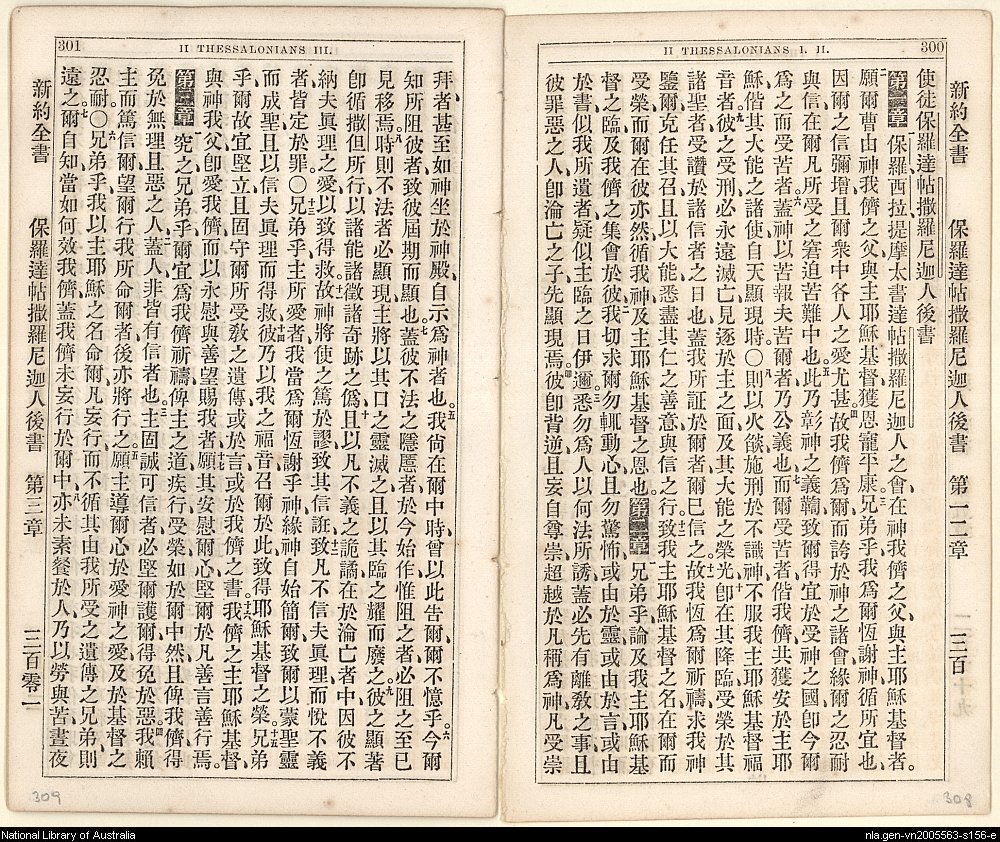 II THESSALONIANS I. II.
300
使徒保羅達帖撒羅尼迦人後書
第一章 保羅西拉提摩太書達帖撒羅尼迦人之會在神我儕之父與主耶穌基督者。
願爾曹由神我儕之父與主耶穌基督獲恩寵平康。三兄弟乎我爲爾恆謝神循所宜也、
因爾之信彌增且爾衆中各人之愛尤甚。四故我儕爲爾而誇於神之諸會緣爾之忍耐
與信在爾凡所受之窘迫苦難中也。五此乃彰神之義鞫致爾得宜於受神之國卽今爾
爲之而受苦者。六蓋神以苦報夫苦爾者乃公義也。七而爾受苦者偕我儕共獲安於主耶
穌偕其大能之諸使自天顯現時。〇八則以火燄施刑於不識神不服我主耶穌基督福
音者。九彼之受刑必永遠滅亡見逐於主之面及其大能之榮光。十卽在其降臨受榮於其
諸聖者受讚於諸信者之日也蓋我所証於爾者爾已信之。十一故我恆爲爾祈禱求我神
鑒爾克任其召且以大能悉盡其仁之善意與信之行。十二致我主耶穌基督之名在爾而
受榮而爾在彼亦然循我神及主耶穌基督之恩也。第二章 一兄弟乎論及我主耶穌基
督之臨及我儕之集會於彼。二我切求爾勿輒動心且勿驚怖或由於靈或由於言或由
於書似我所遺者疑似主臨之日伊邇。三悉勿爲人以何法所誘蓋必先有離敎之事且
彼罪惡之人卽淪亡之子先顯現焉。四彼卽背逆且妄自尊崇超越於凡稱爲神凡受崇
新約全書
保羅達帖撒羅尼迦人後書
第一二章
三百
308
301
II THESSALONIANS III.
拜者甚至如神坐於神殿自示爲神者也。五我尙在爾中時曾以此告爾爾不憶乎。六今爾
知所阻彼者致彼屆期而顯也。七蓋彼不法之隱慝者於今始作惟阻之者必阻之至已
見移焉。八時則不法者必顯現主將以其口之靈滅之且以其臨之耀而廢之。九彼之顯著
卽循撒但所行以諸能諸徵諸奇跡之僞。十且以凡不義之詭譎在於淪亡者中因彼不
納夫眞理之愛以致得救。十一故神將使之篤於謬致其信誑。十二致凡不信夫眞理而悅不義
者皆定於罪。〇十三兄弟乎主所愛者我當爲爾恆謝乎神緣神自始簡爾致爾以蒙聖靈
而成聖且以信夫眞理而得救。十四彼乃以我之福音召爾於此致得耶穌基督之榮。十五兄弟
乎爾故宜堅立且固守爾所受敎之遺傳或於言或於我儕之書。十六我儕之主耶穌基督、
與神我父卽愛我儕而以永慰與善望賜我者。十七願其安慰爾心堅爾於凡善言善行焉。
第三章 究之兄弟乎爾宜爲我儕祈禱俾主之道疾行受榮如於爾中然。二且俾我儕得
免於無理且惡之人蓋人非皆有信者也。三主固誠可信者必堅爾護爾得免於惡。四我賴
主而篤信爾望爾行我所命爾者後亦將行之。五願主導爾心於愛神之愛及於基督之
忍耐。〇六兄弟乎我以主耶穌之名命爾凡妄行而不循其由我所受之遺傳之兄弟則
遠之。七爾自知當如何效我儕蓋我儕未妄行於爾中。八亦未素餐於人乃以勞與苦晝夜
新約全書
保羅達帖撒羅尼迦人後書
第三章
三百零一
309
National Library of Australia
nla.gen-vn2005563-s156-e